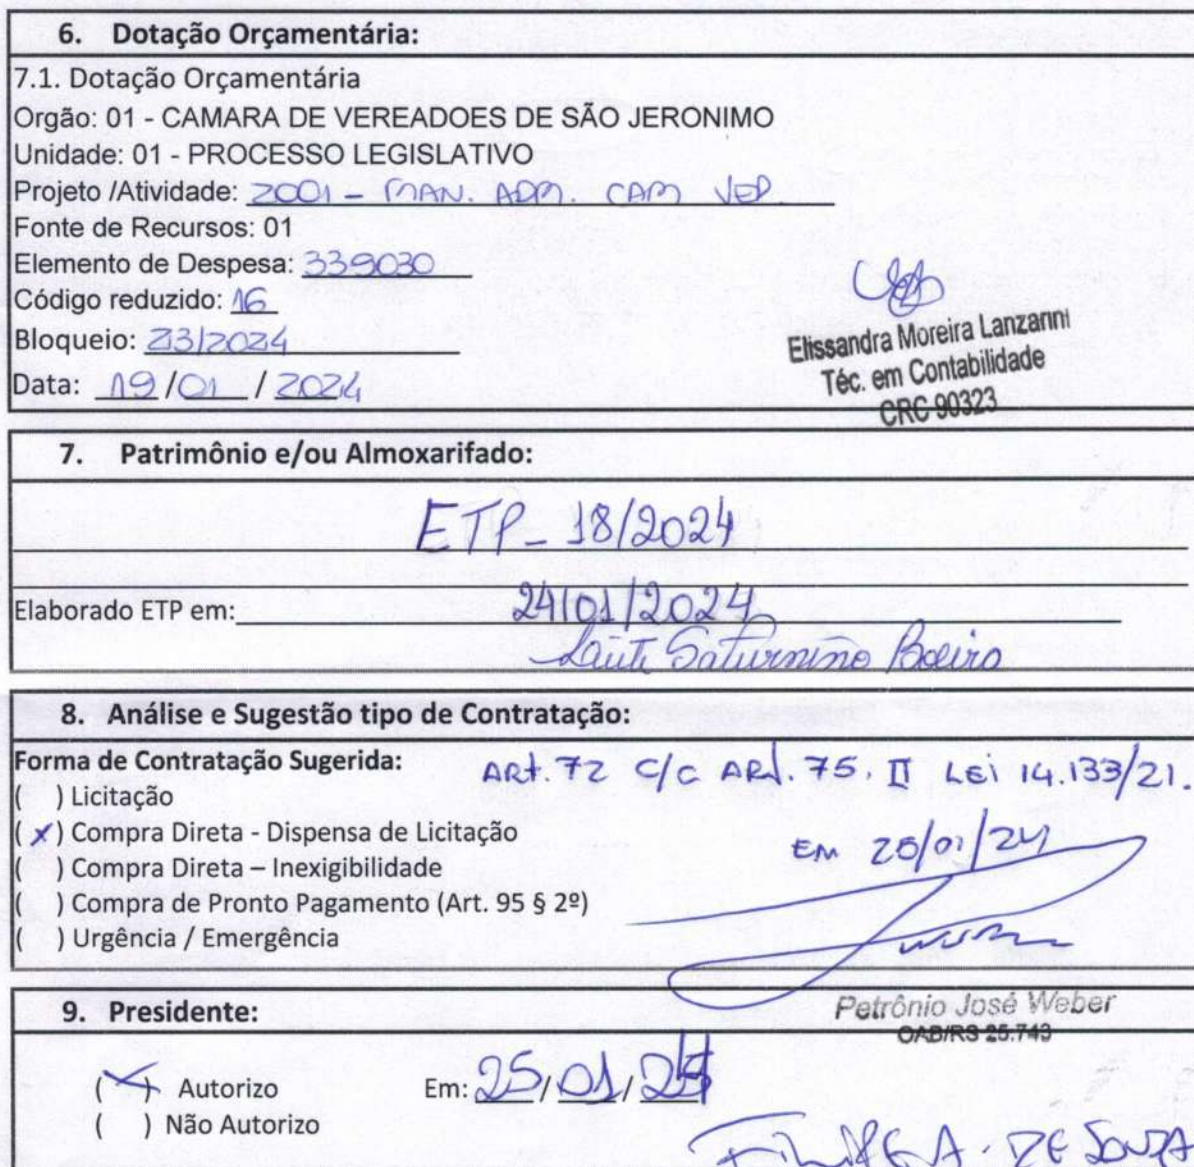 6. Dotação Orçamentária:
7.1. Dotação Orçamentária
Orgão: 01 - CAMARA DE VEREADOES DE SÃO JERONIMO
Unidade: 01 - PROCESSO LEGISLATIVO
Projeto /Atividade: 2001 - MAN. ADM. CAM VER
Fonte de Recursos: 01
Elemento de Despesa: 339030
Código reduzido: 16
Bloqueio: 23/2024
Data: 19 /01 / 2024
Elissandra Moreira Lanzarini
Téc. em Contabilidade
CRC 90323
7. Patrimônio e/ou Almoxarifado:
ETP - 18/2024
Elaborado ETP em: 24/01/2024
Saturnino Boeiro
8. Análise e Sugestão tipo de Contratação:
Forma de Contratação Sugerida:
ARt. 72 C/C ARt. 75. II LEi 14.133/21.
( ) Licitação
( x ) Compra Direta - Dispensa de Licitação
EM 25/01/24
( ) Compra Direta – Inexigibilidade
( ) Compra de Pronto Pagamento (Art. 95 § 2º)
( ) Urgência / Emergência
9. Presidente:
Petrônio José Weber
OAB/RS 25.743
( X ) Autorizo Em: 25/01/24
( ) Não Autorizo
A. DE SOUZA